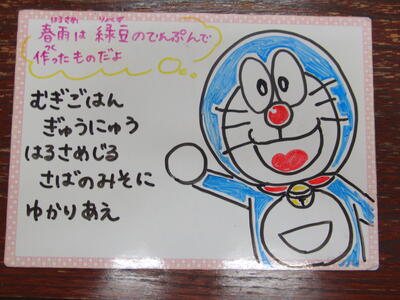 春雨は 緑豆のでんぷんで
はるさめ りょくとう
作ったものだよ
つく
むぎごはん
ぎゅうにゅう
はるさめじる
さばのみそに
ゆかりあえ